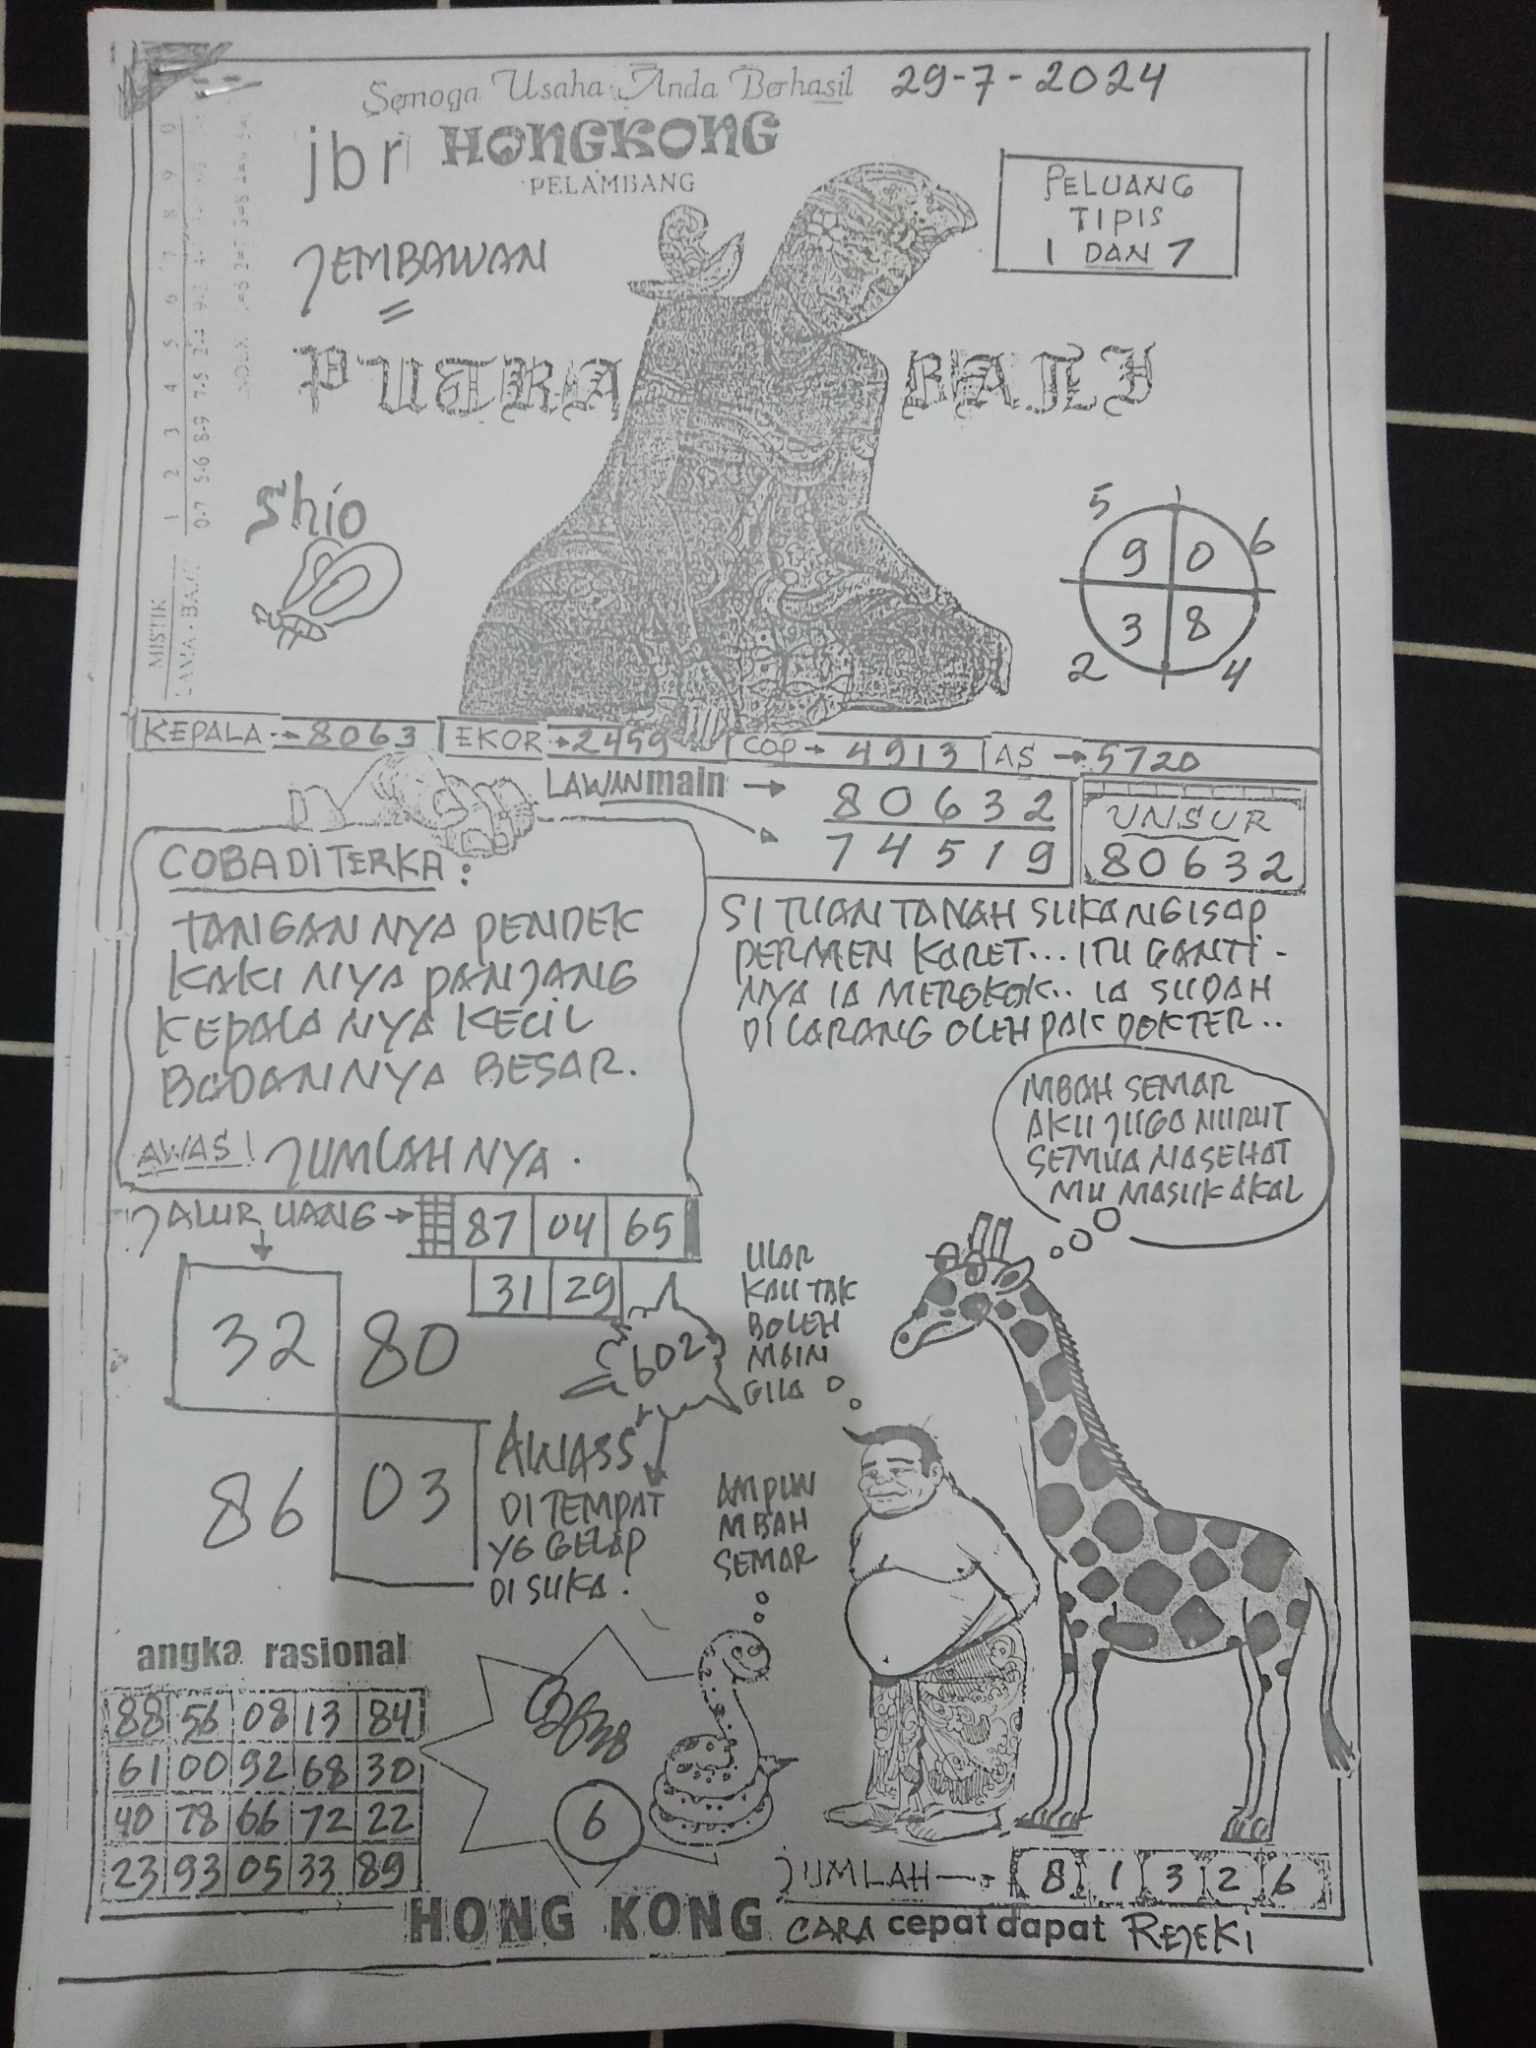 Semoga Usaha Anda Berhasil 29-7-2024
jbr HONGKONG
PELAMBANG
PELUANG
TIPIS
1 DAN 7
JEMBAWAN
=
PUTRA BALI
Shio
5 6
9 0
3 8
2 4
MISTIK 1 2 3 4 5 6 7 8 9 0
LAMA - 0-7 5-6 8-9 7-5 2-4
KEPALA → 8063 EKOR → 2459 COP → 4913 AS → 5720
LAWAN main → 80632
74519
UNSUR
80632
COBA DI TERKA :
TANGAN NYA PENDEK
KAKI NYA PANJANG
KEPALA NYA KECIL
BADANNYA BESAR.
AWAS! JUMLAH NYA .
SI TUAN TANAH SUKA NGISAP
PERMEN KARET... ITU GANTI -
NYA IA MEROKOK.. IA SUDAH
DI LARANG OLEH PAK DOKTER..
MBAH SEMAR
AKU JUGA NURUT
SEMUA NASEHAT
MU MASUK AKAL
JALUR UANG → 87 04 65
31 29
32 80
86 03
602
AWASS
DI TEMPAT
YG GELAP
DI SUKA.
ULAR
KAU TAK
BOLEH
MAIN
GILA
AMPUN
MBAH
SEMAR
angka rasional
88 56 08 13 84
61 00 92 68 30
40 78 66 72 22
23 93 05 33 89
6
JUMLAH → 8 1 3 2 6
HONG KONG CARA cepat dapat REJEKI